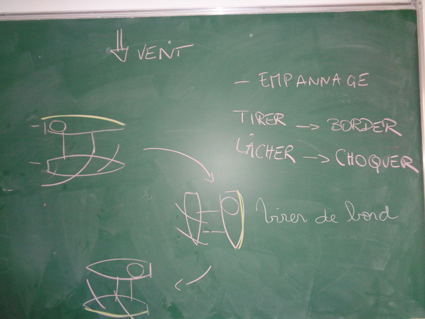 VENT
- EMPANNAGE
TIRER → BORDER
LÂCHER → CHOQUER
Virer de bord